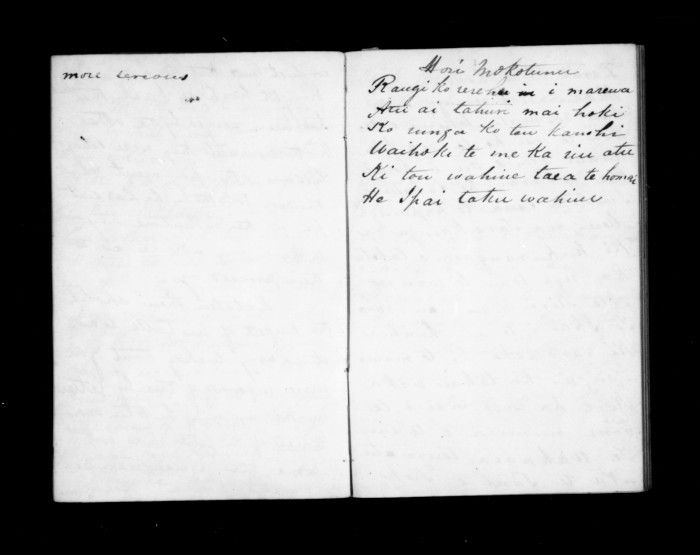 more serious
Hori Mokotunu
Raugi ko rerehu i marewa
Atu ai tahuri mai hoki
Ko runga ko tou kanohi
Waihoki te me ka riu atu
Ki tou wahine taea te homai
He Ipai taku wahine